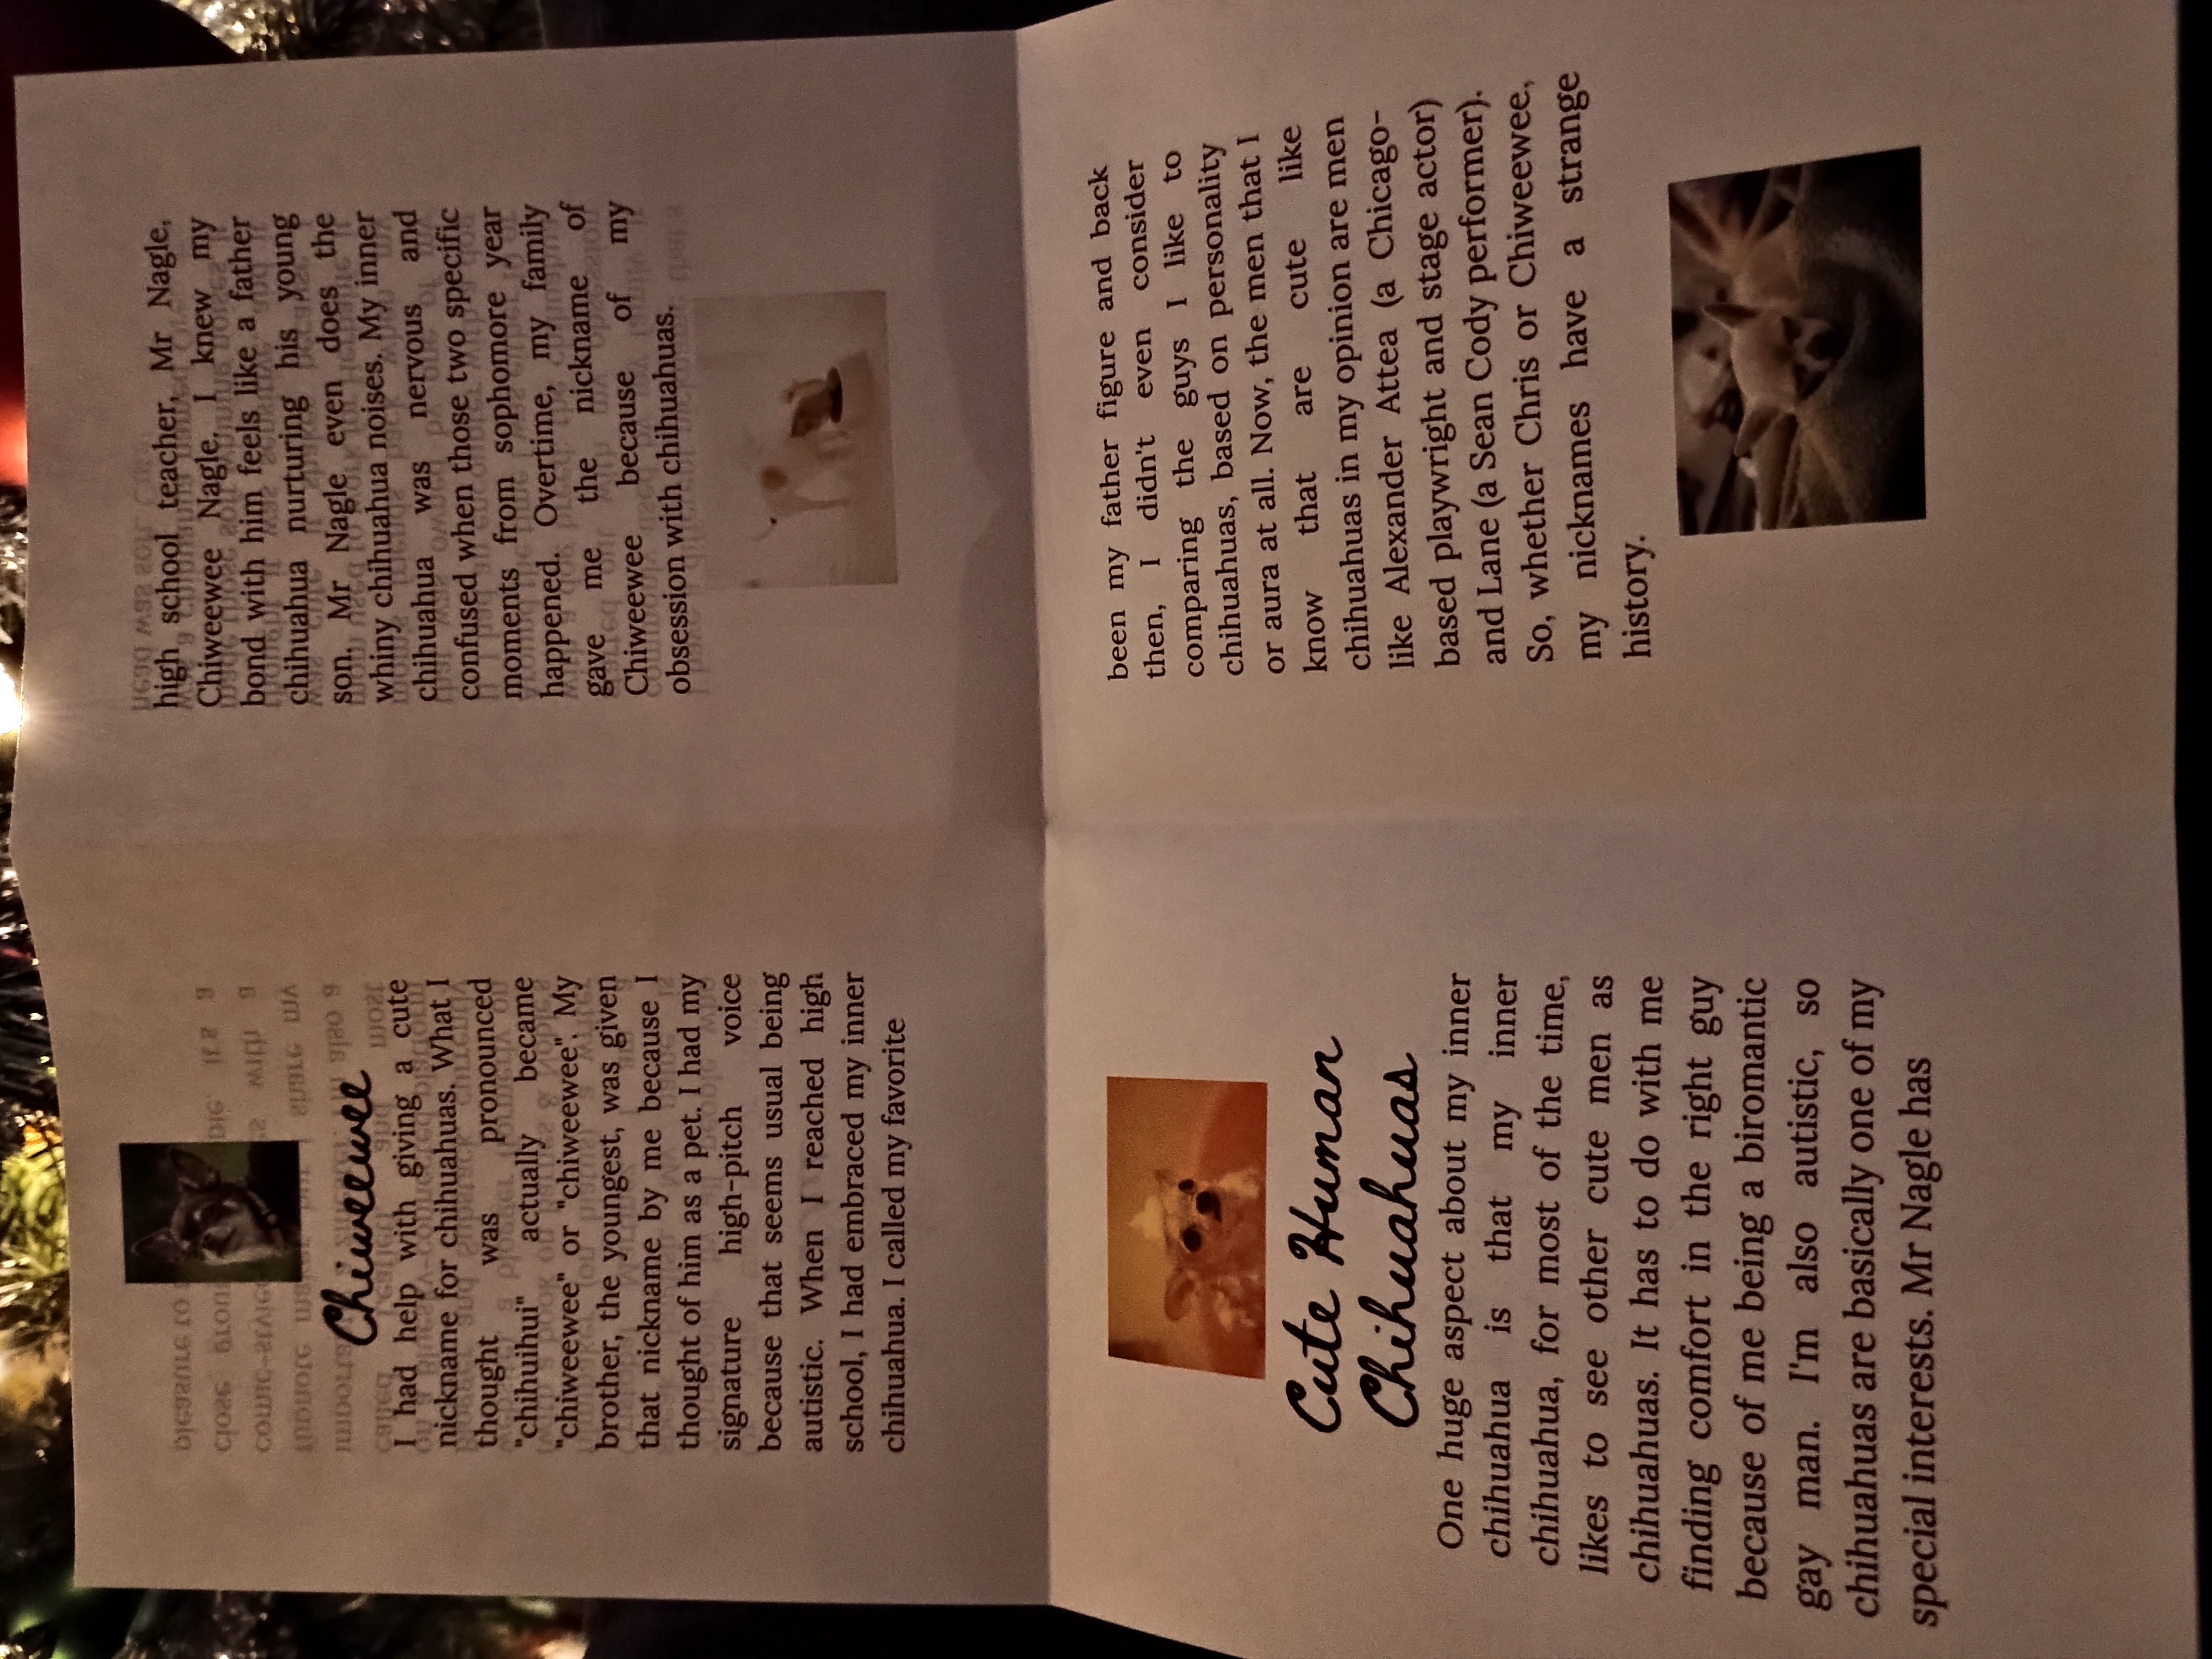 Chiweewee
I had help with giving a cute
nickname for chihuahuas. What I
thought was pronounced
"chihuihui" actually became
"chiweewee" or "chiweewee". My
brother, the youngest, was given
that nickname by me because I
thought of him as a pet. I had my
signature high-pitch voice
because that seems usual being
autistic. When I reached high
school, I had embraced my inner
chihuahua. I called my favorite
high school teacher, Mr Nagle,
Chiweewee Nagle. I knew my
bond with him feels like a father
chihuahua nurturing his young
son. Mr Nagle even does the
whiny chihuahua noises. My inner
chihuahua was nervous and
confused when those two specific
moments from sophomore year
happened. Overtime, my family
gave me the nickname of
Chiweewee because of my
obsession with chihuahuas.
Cute Human
Chihuahuas
One huge aspect about my inner
chihuahua is that my inner
chihuahua, for most of the time,
likes to see other cute men as
chihuahuas. It has to do with me
finding comfort in the right guy
because of me being a biromantic
gay man. I'm also autistic, so
chihuahuas are basically one of my
special interests. Mr Nagle has
been my father figure and back
then, I didn't even consider
comparing the guys I like to
chihuahuas, based on personality
or aura at all. Now, the men that I
know that are cute like
chihuahuas in my opinion are men
like Alexander Attea (a Chicago-
based playwright and stage actor)
and Lane (a Sean Cody performer).
So, whether Chris or Chiweewee,
my nicknames have a strange
history.